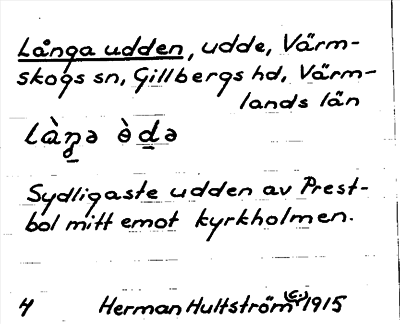 Långa udden, udde, Värm-
skogs sn, Gillbergs hd, Värm-
lands län
làŋ̠ə òd̠ə
Sydligaste udden av Prest-
bol mitt emot kyrkholmen.
4 Herman Hultström (C.) 1915